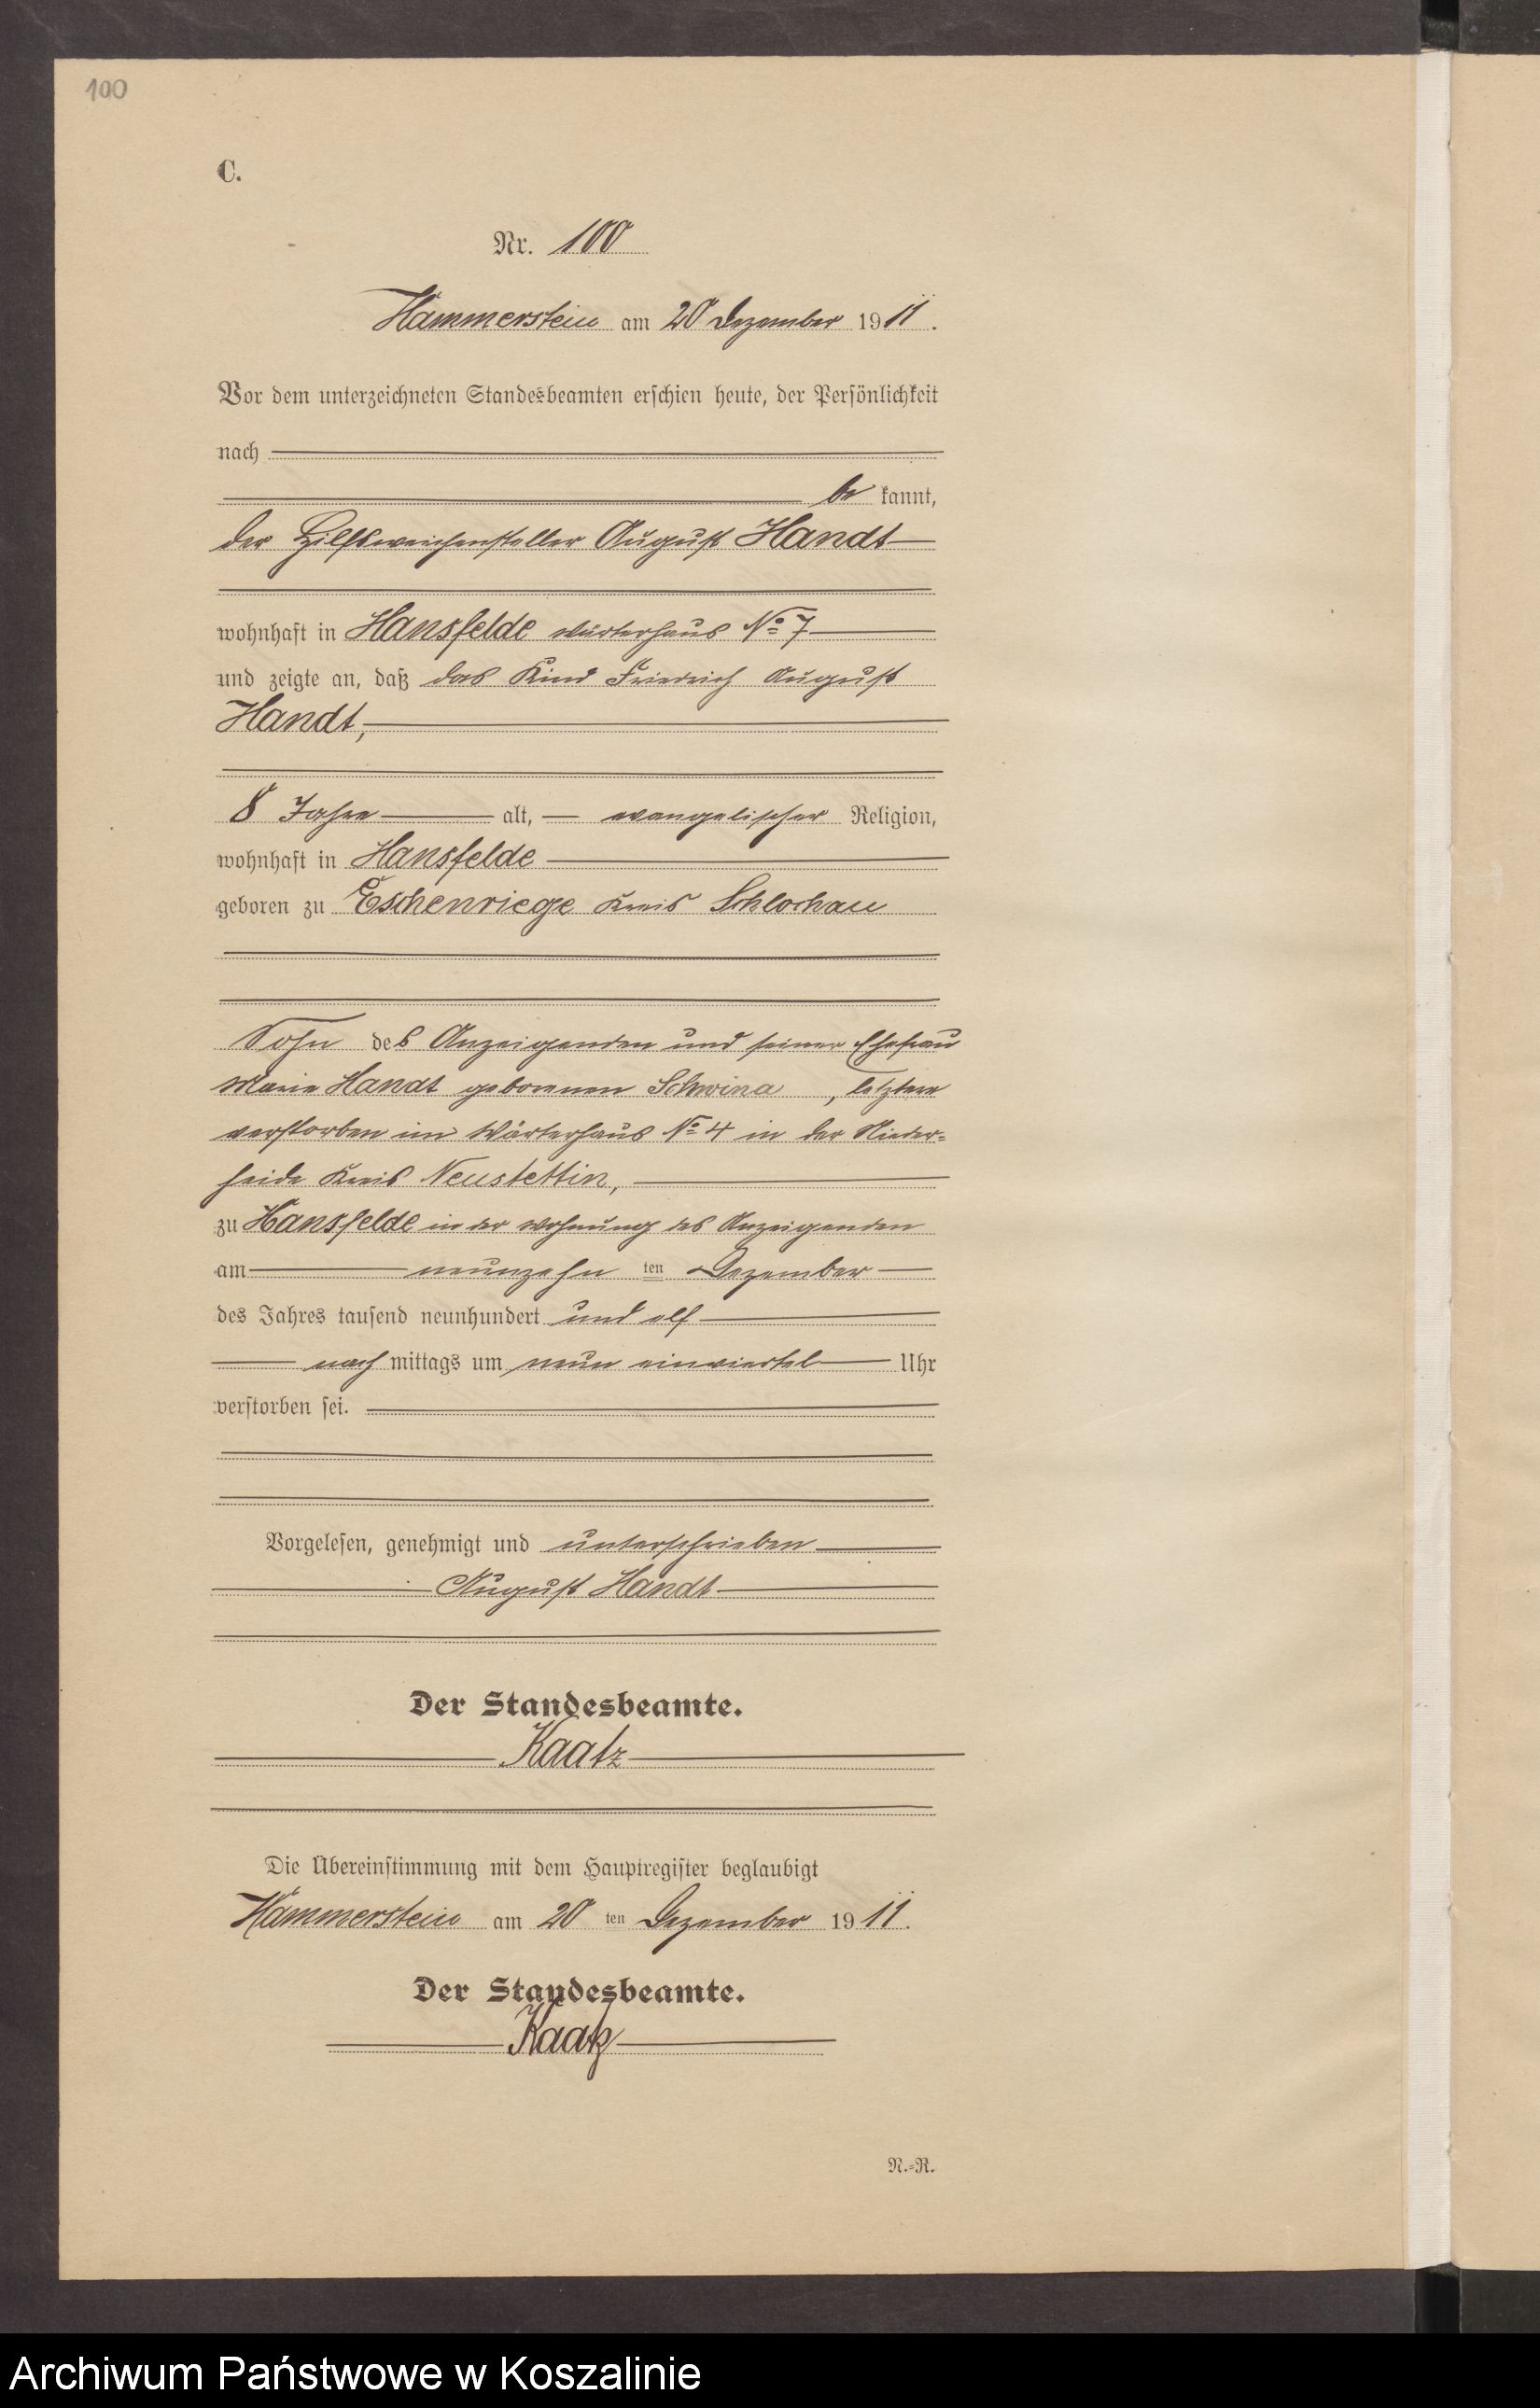 100
C.
Nr. 100
Hammerstein am 20 Dezember 1911.
Vor dem unterzeichneten Standesbeamten erschien heute, der Persönlichkeit
nach
be kannt,
der Hilfsweichensteller August Handt
wohnhaft in Hansfelde Wärterhaus No 7
und zeigte an, daß das Kind Friedrich August
Handt,
8 Jahre alt, evangelischer Religion,
wohnhaft in Hansfelde
geboren zu Eschenriege Kreis Schlochau
Sohn des Anzeigenden und seiner Ehefrau
Marie Handt geborenen Schwina, letztere
verstorben im Wärterhaus No 4 in der Nieder-
heide Kreis Neustettin,
zu Hansfelde in der Wohnung des Anzeigenden
am neunzehn ten Dezember
des Jahres tausend neunhundert und elf
nach mittags um neun einviertel Uhr
verstorben sei.
Vorgelesen, genehmigt und unterschrieben
August Handt
Der Standesbeamte.
Kaatz
Die Übereinstimmung mit dem Hauptregister beglaubigt
Hammerstein am 20 ten Dezember 1911.
Der Standesbeamte.
Kaatz
N.-R.
Archiwum Państwowe w Koszalinie